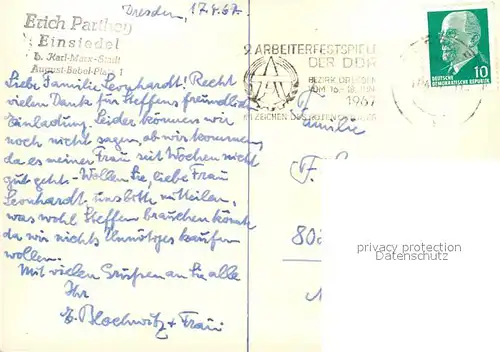 Dresden, 17.4.67.
Erich Parthey
Einsiedel
b. Karl-Marx-Stadt
August-Bebel-Platz 1
Liebe Familie Leonhardt! Recht
vielen Dank für Steffens freundliche
Einladung. Leider können wir
noch nicht sagen, ob wir kommen,
da es meiner Frau seit Wochen nicht
gut geht. Wollen Sie, liebe Frau
Leonhardt, uns bitte mitteilen,
was wohl Steffen brauchen könnte
da wir nichts Unnötiges kaufen
wollen.
Mit vielen Grüssen an Sie alle
Ihr
E. Blochwitz + Frau
9. ARBEITERFESTSPIELE
DER DDR
BEZIRK DRESDEN
VOM 16.-18. JUNI
1967
IM ZEICHEN DES ROTEN
DEUTSCHE
DEMOKRATISCHE REPUBLIK
10
Familie
F.
80
privacy protection
Datenschutz